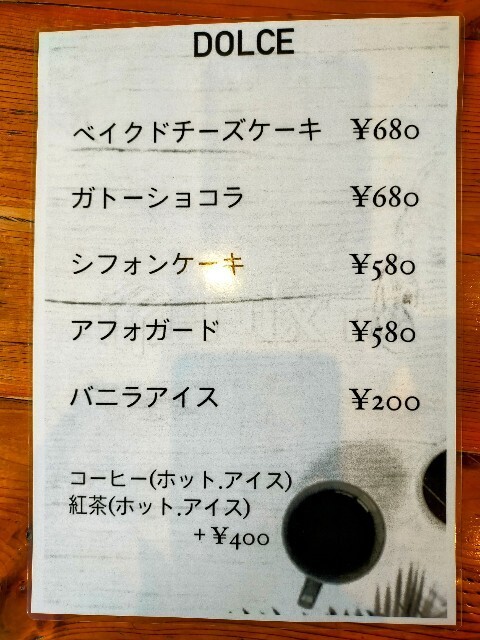 DOLCE
ベイクドチーズケーキ ¥680
ガトーショコラ ¥680
シフォンケーキ ¥580
アフォガード ¥580
バニラアイス ¥200
コーヒー(ホット.アイス)
紅茶(ホット.アイス)
+¥400